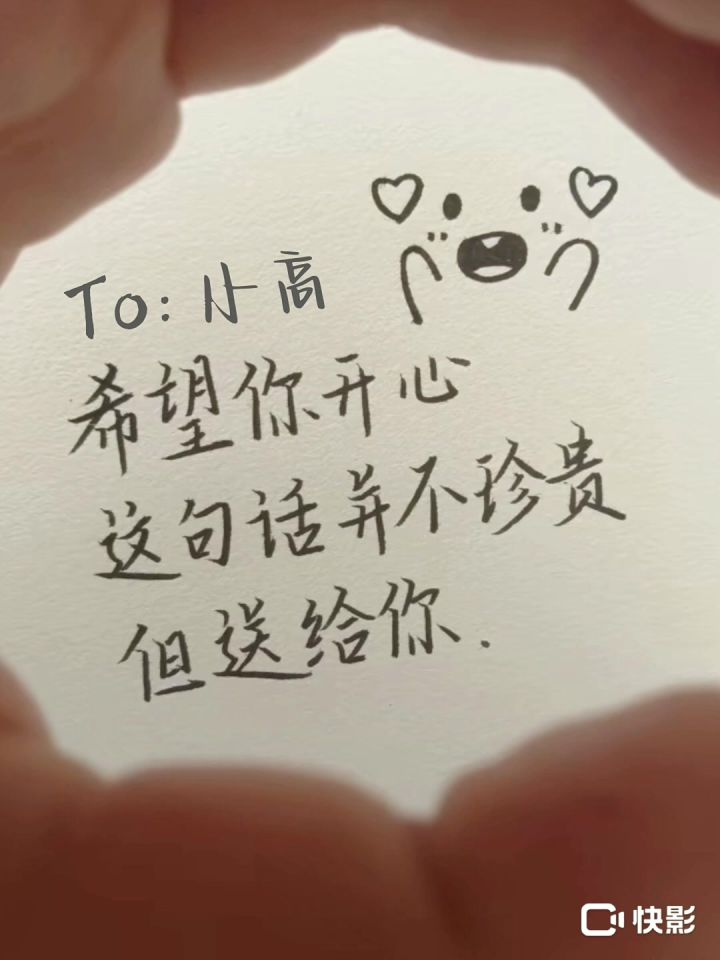 To:小高
希望你开心
这句话并不珍贵
但送给你.
快影